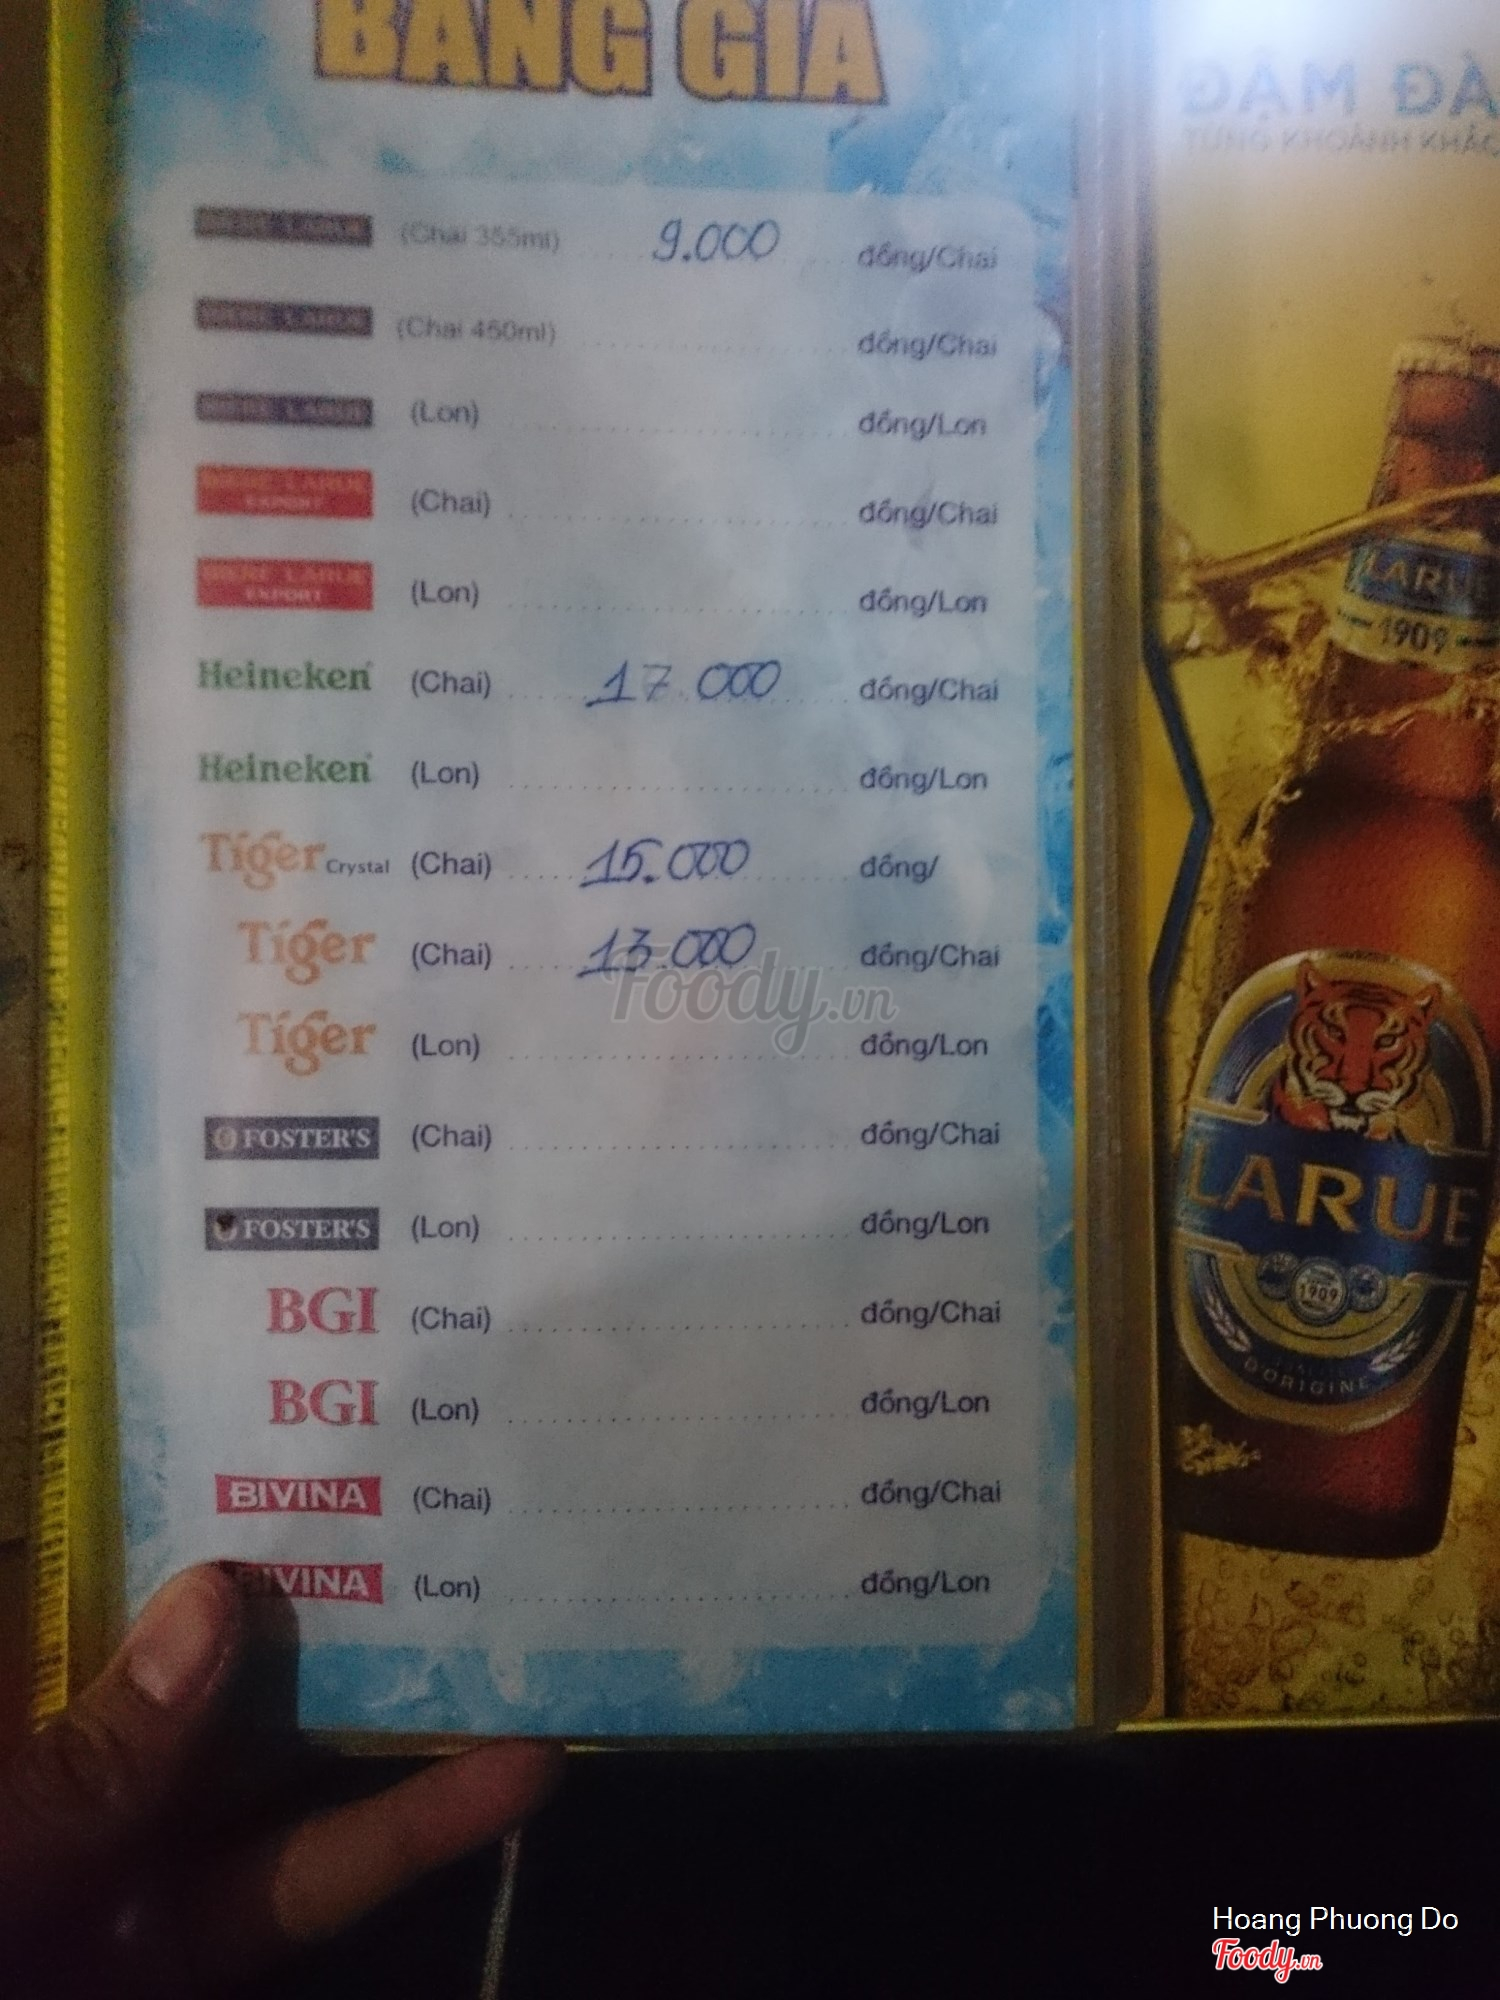 BẢNG GIÁ
BIERE LARUE (Chai 355ml) 9.000 đồng/Chai
BIERE LARUE (Chai 450ml) đồng/Chai
BIERE LARUE (Lon) đồng/Lon
BIERE LARUE EXPORT (Chai) đồng/Chai
BIERE LARUE EXPORT (Lon) đồng/Lon
Heineken (Chai) 17.000 đồng/Chai
Heineken (Lon) đồng/Lon
Tiger Crystal (Chai) 15.000 đồng/
Tiger (Chai) 13.000 đồng/Chai
Tiger (Lon) đồng/Lon
FOSTER'S (Chai) đồng/Chai
FOSTER'S (Lon) đồng/Lon
BGI (Chai) đồng/Chai
BGI (Lon) đồng/Lon
BIVINA (Chai) đồng/Chai
BIVINA (Lon) đồng/Lon
Foody.vn
ĐẬM ĐÀ
LARUE
1909
LARUE
1909
D'ORIGINE
Hoang Phuong Do
Foody.vn